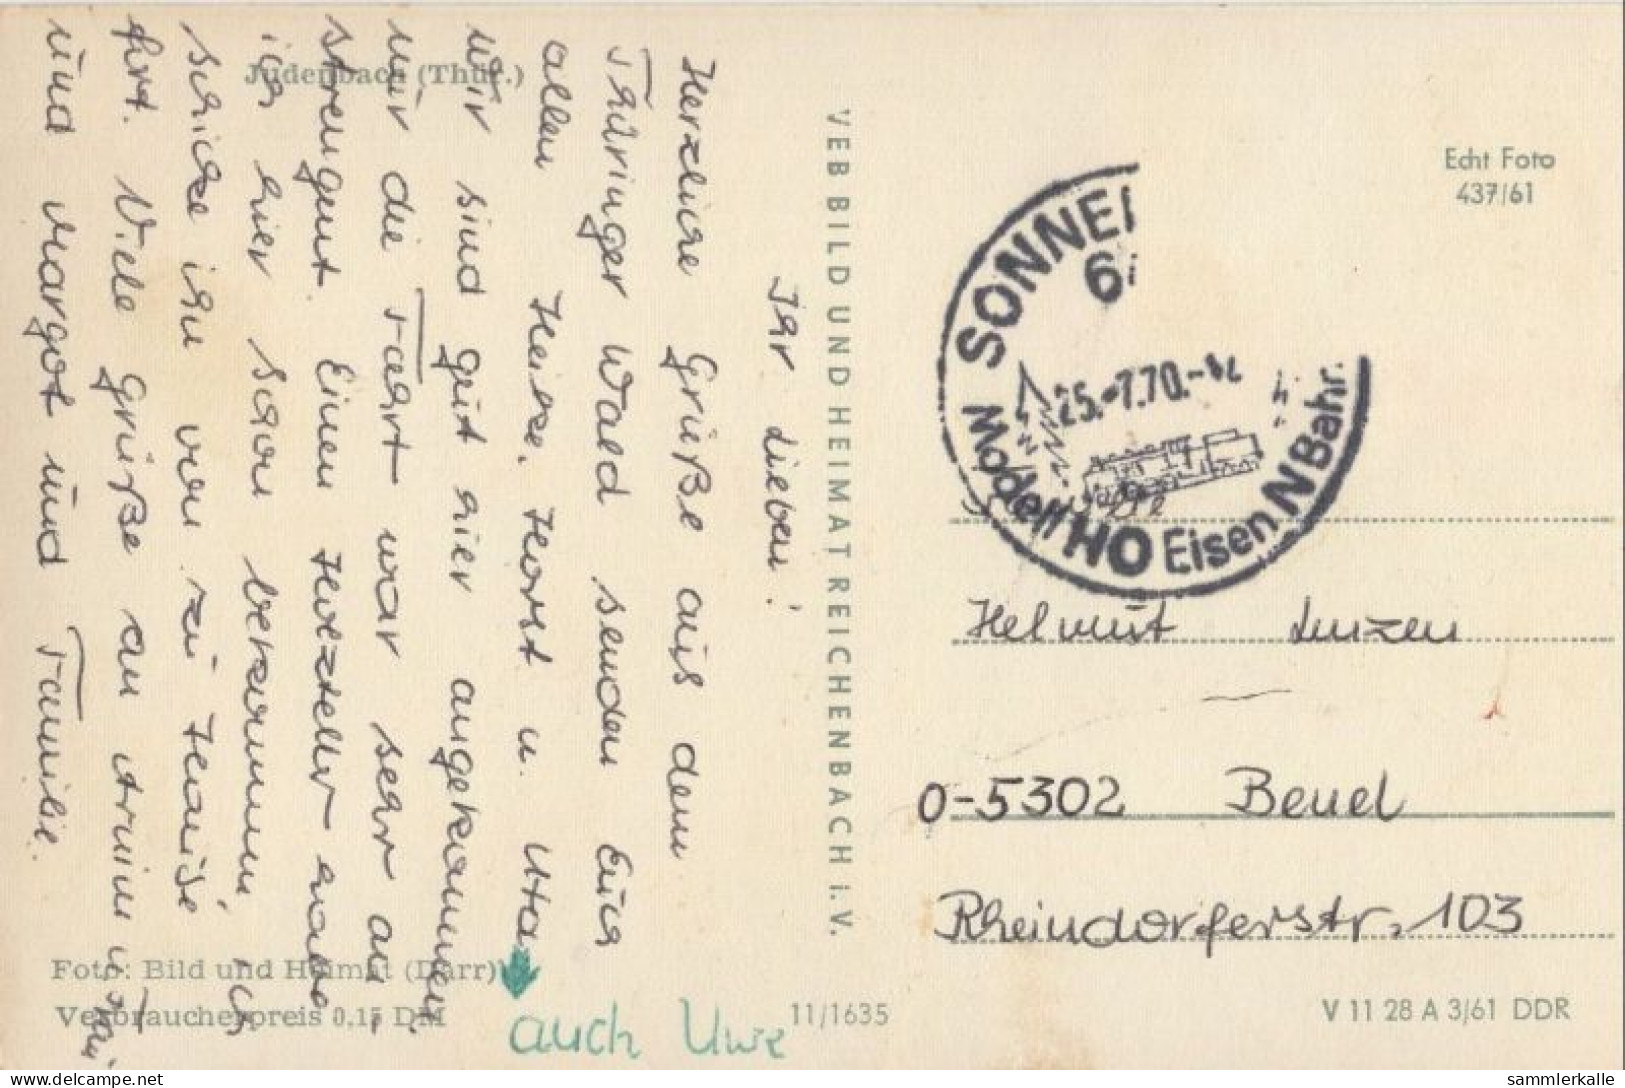 Judenbach (Thür.)
Ihr Lieben!
Herzliche Grüße aus dem
Thüringer Wald senden Euch
allen Heike, Horst u. Uta
auch Uwe
Wir sind gut hier angekommen,
nur die Fahrt war sehr an-
strengent. Einen Holzteller habe
ich hier schon bekommen, ich
schicke ihn von zu Hause
fort. Viele Grüße an Armin u.
und Margot und Familie.
Foto: Bild und Heimat (Darr)
Verbraucherpreis 0,15 DM
11/1635
VEB BILD UND HEIMAT REICHENBACH I. V.
Echt Foto
437/61
SONNE
6
25.-7.70.-
Modell HO Eisen N Bahn
Familie
Helmut
0-5302 Beuel
Rheindorferstr. 103
V 11 28 A 3/61 DDR
sammlerkalle